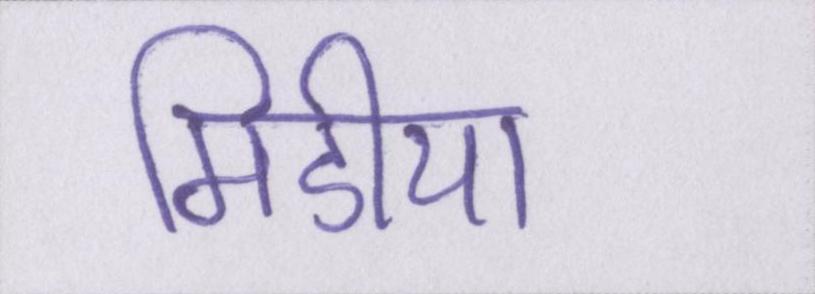 मिडीया